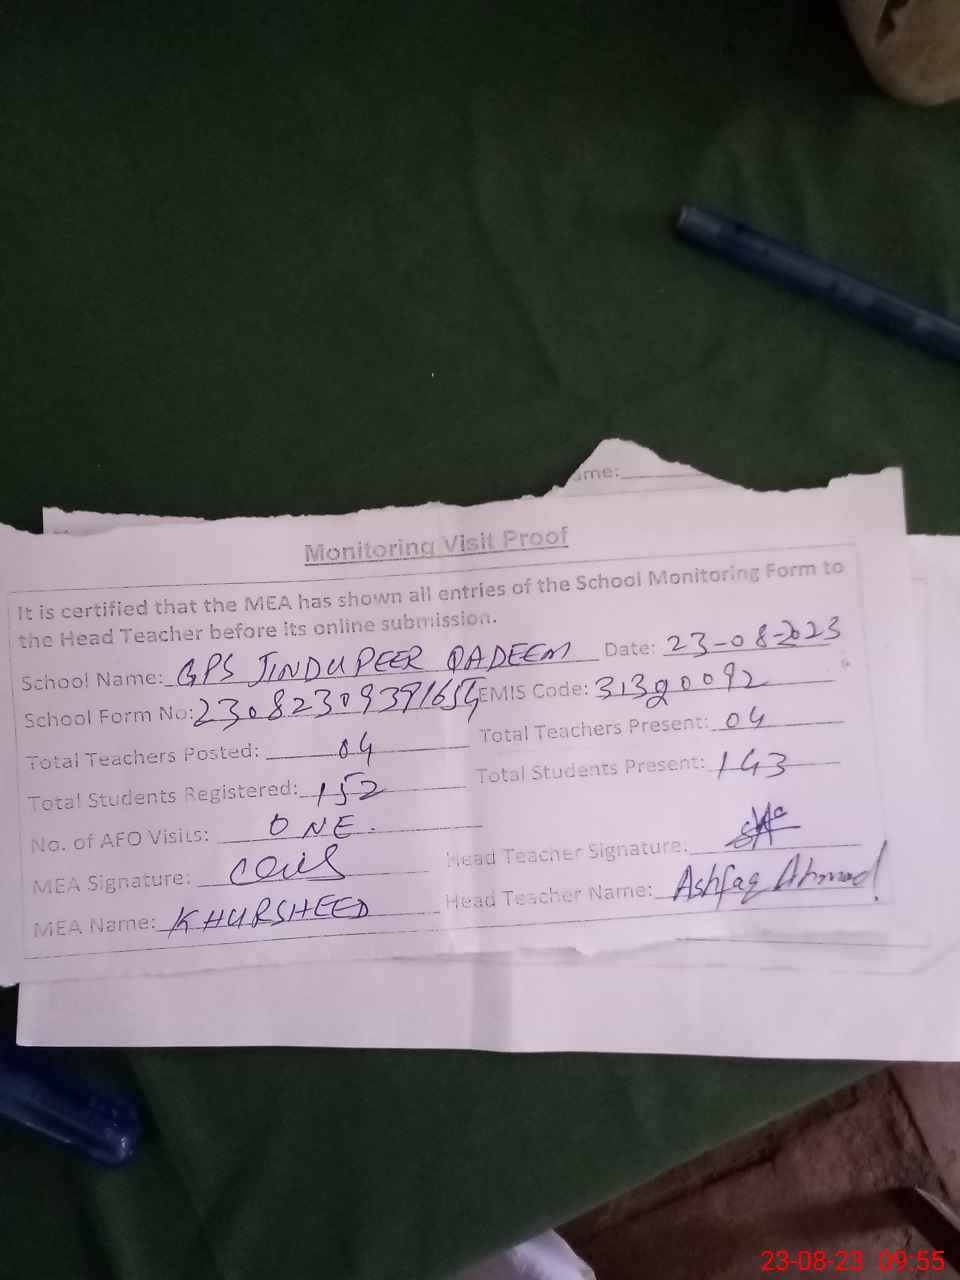 ame:
Monitoring Visit Proof
It is certified that the MEA has shown all entries of the School Monitoring Form to
the Head Teacher before its online submission.
School Name: GPS JINDUPEER QADEEM Date: 23-08-2023
School Form No: EMIS Code: 31320092
Total Teachers Posted: 04 Total Teachers Present: 04
Total Students Registered: 152 Total Students Present: 143
No. of AFO Visits: ONE.
MEA Signature: Head Teacher Signature:
MEA Name: KHURSHEED Head Teacher Name: Ashfaq Ahmad
23-08-23 09:55